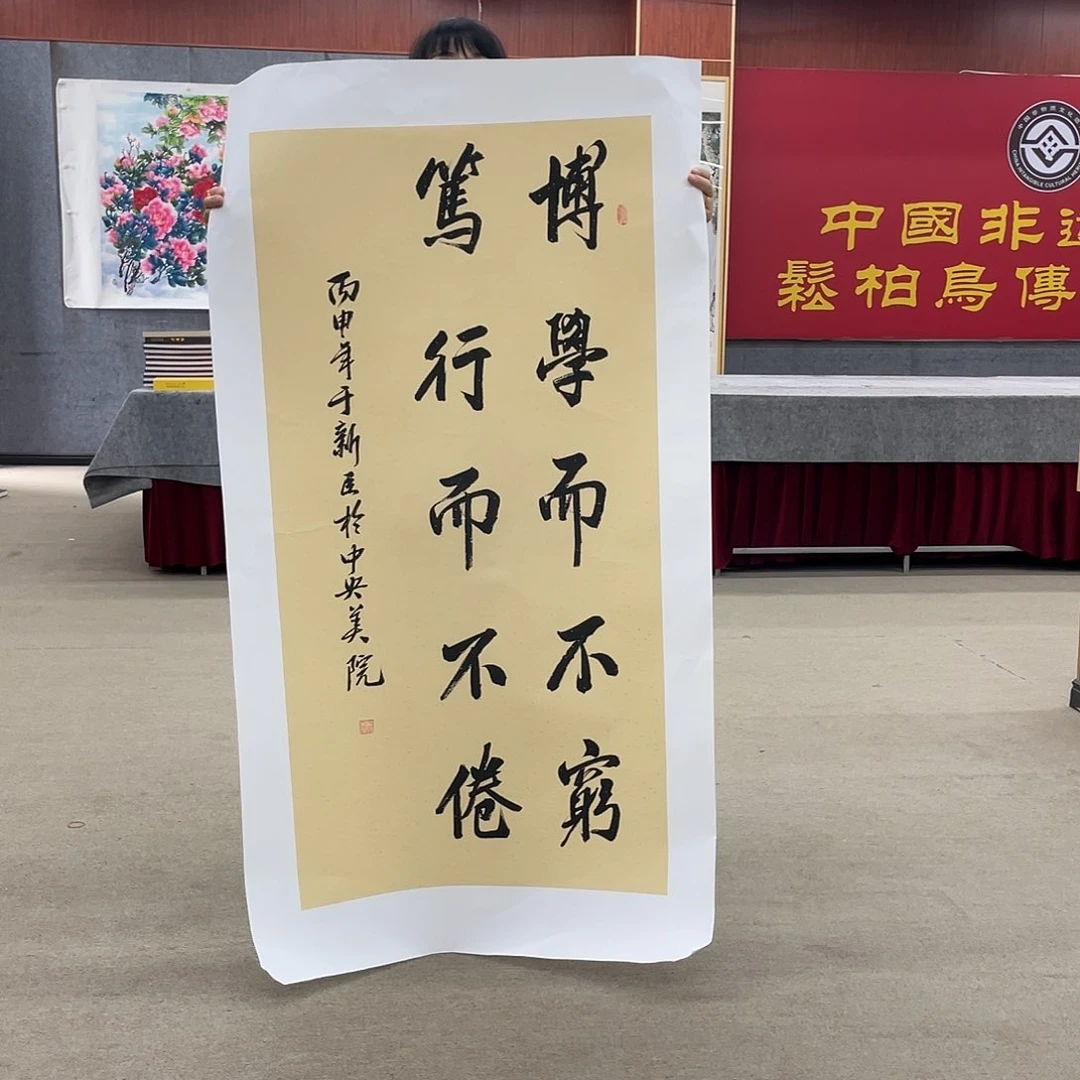 博學而不窮
篤行而不倦
丙申年于新臣於中央美院
中國非遗
鬆柏鳥傳